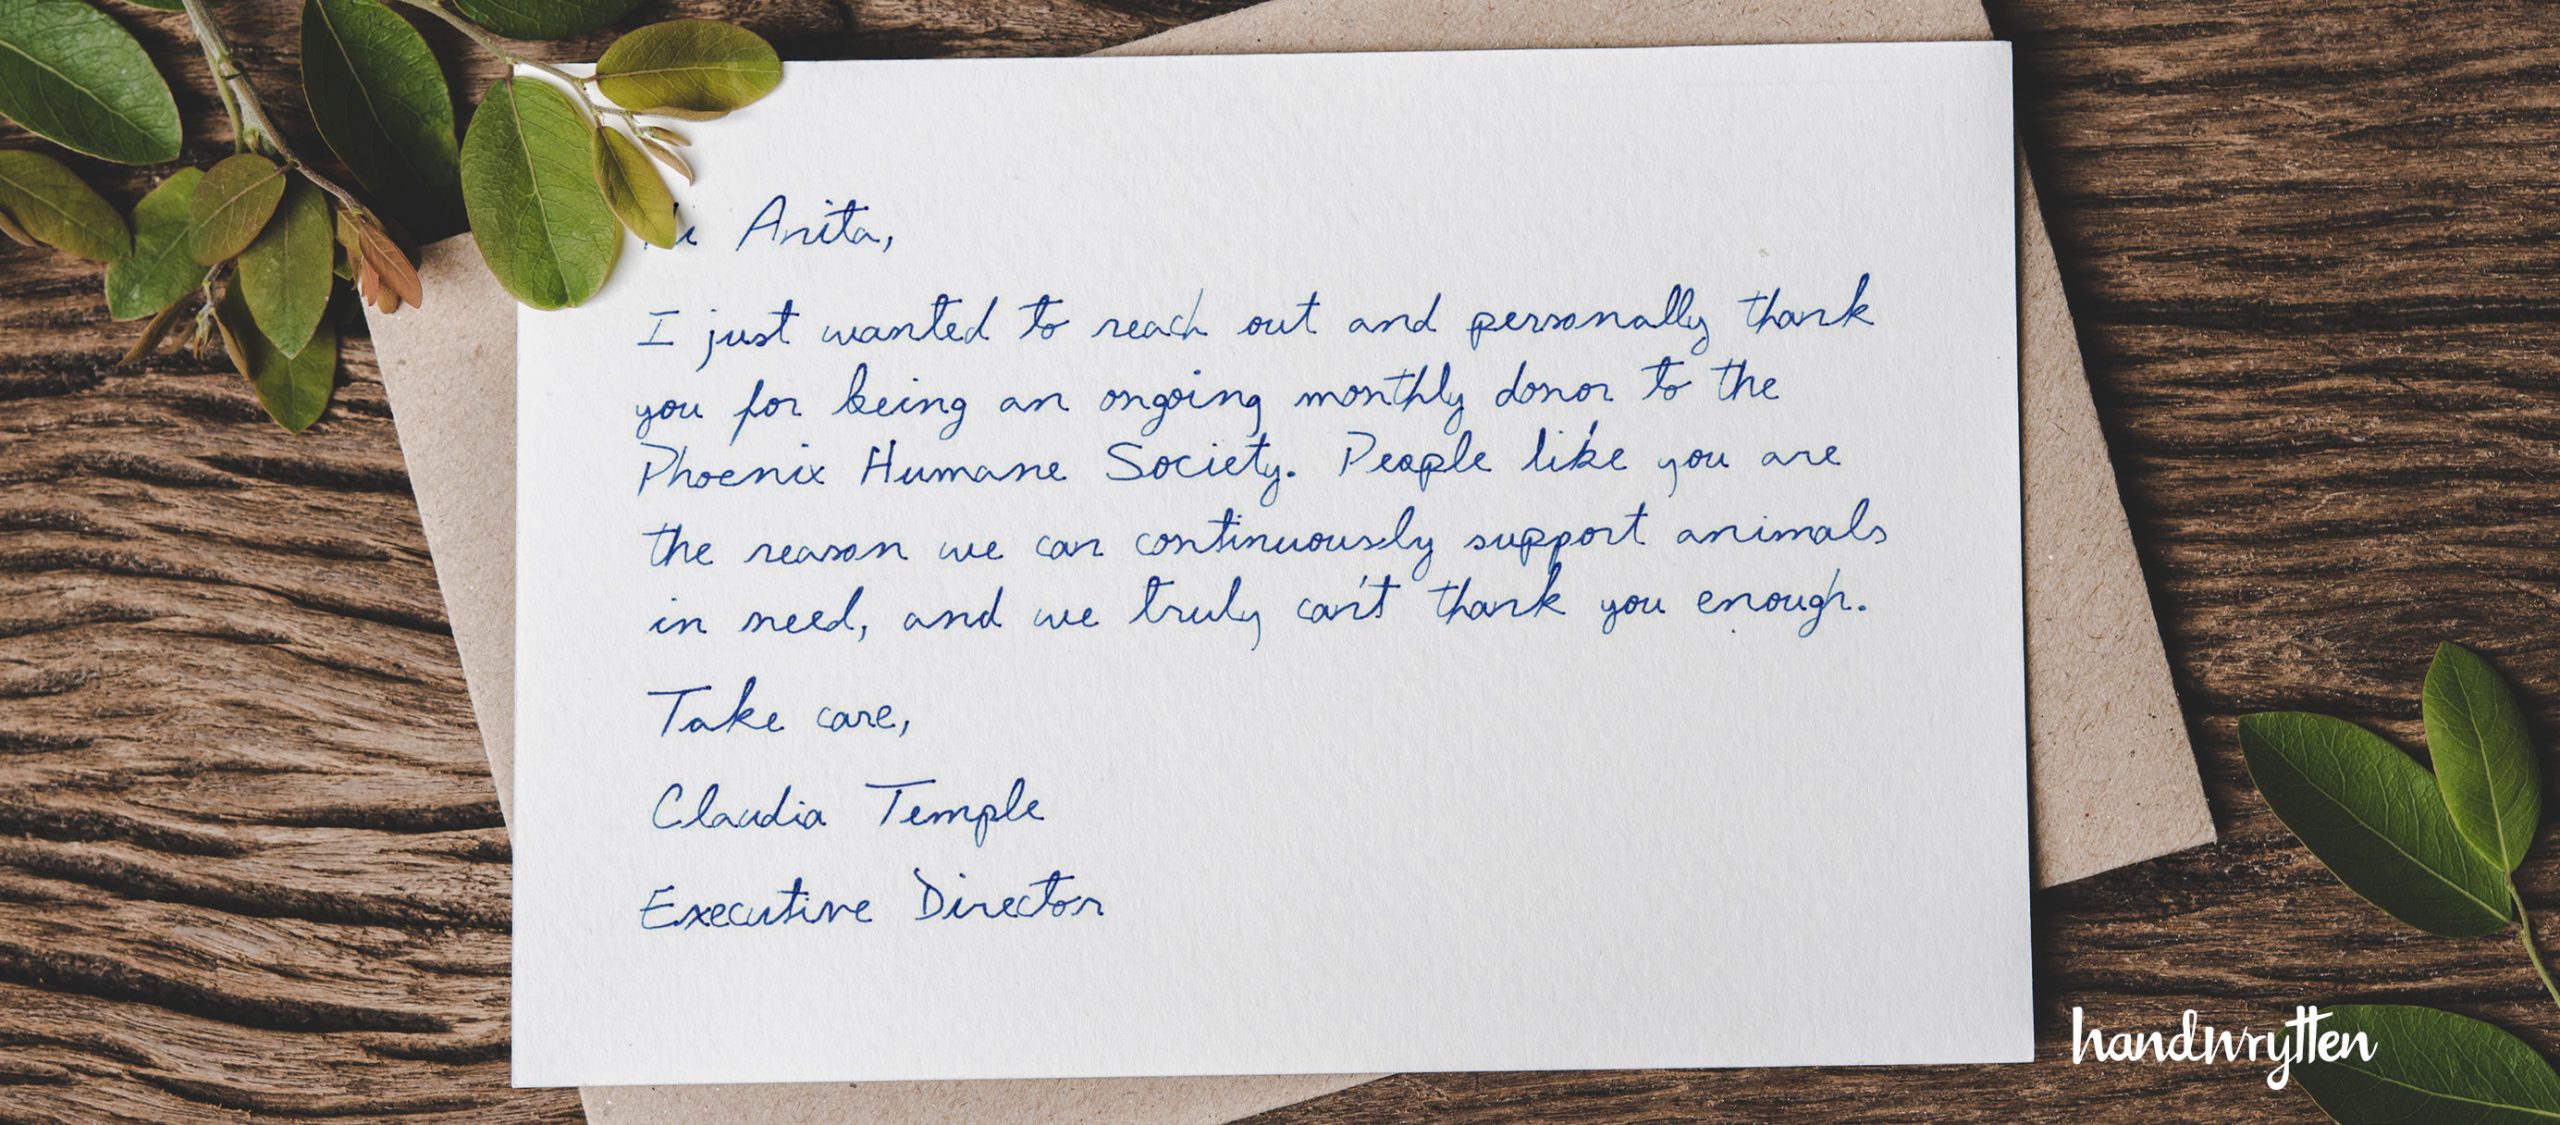 Hi Anita,
I just wanted to reach out and personally thank
you for being an ongoing monthly donor to the
Phoenix Humane Society. People like you are
the reason we can continuously support animals
in need, and we truly can't thank you enough.
Take care,
Claudia Temple
Executive Director
handwrytten